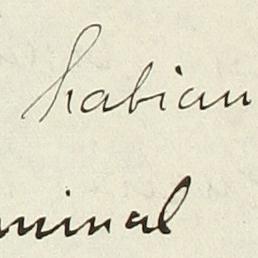 Fabian
minal